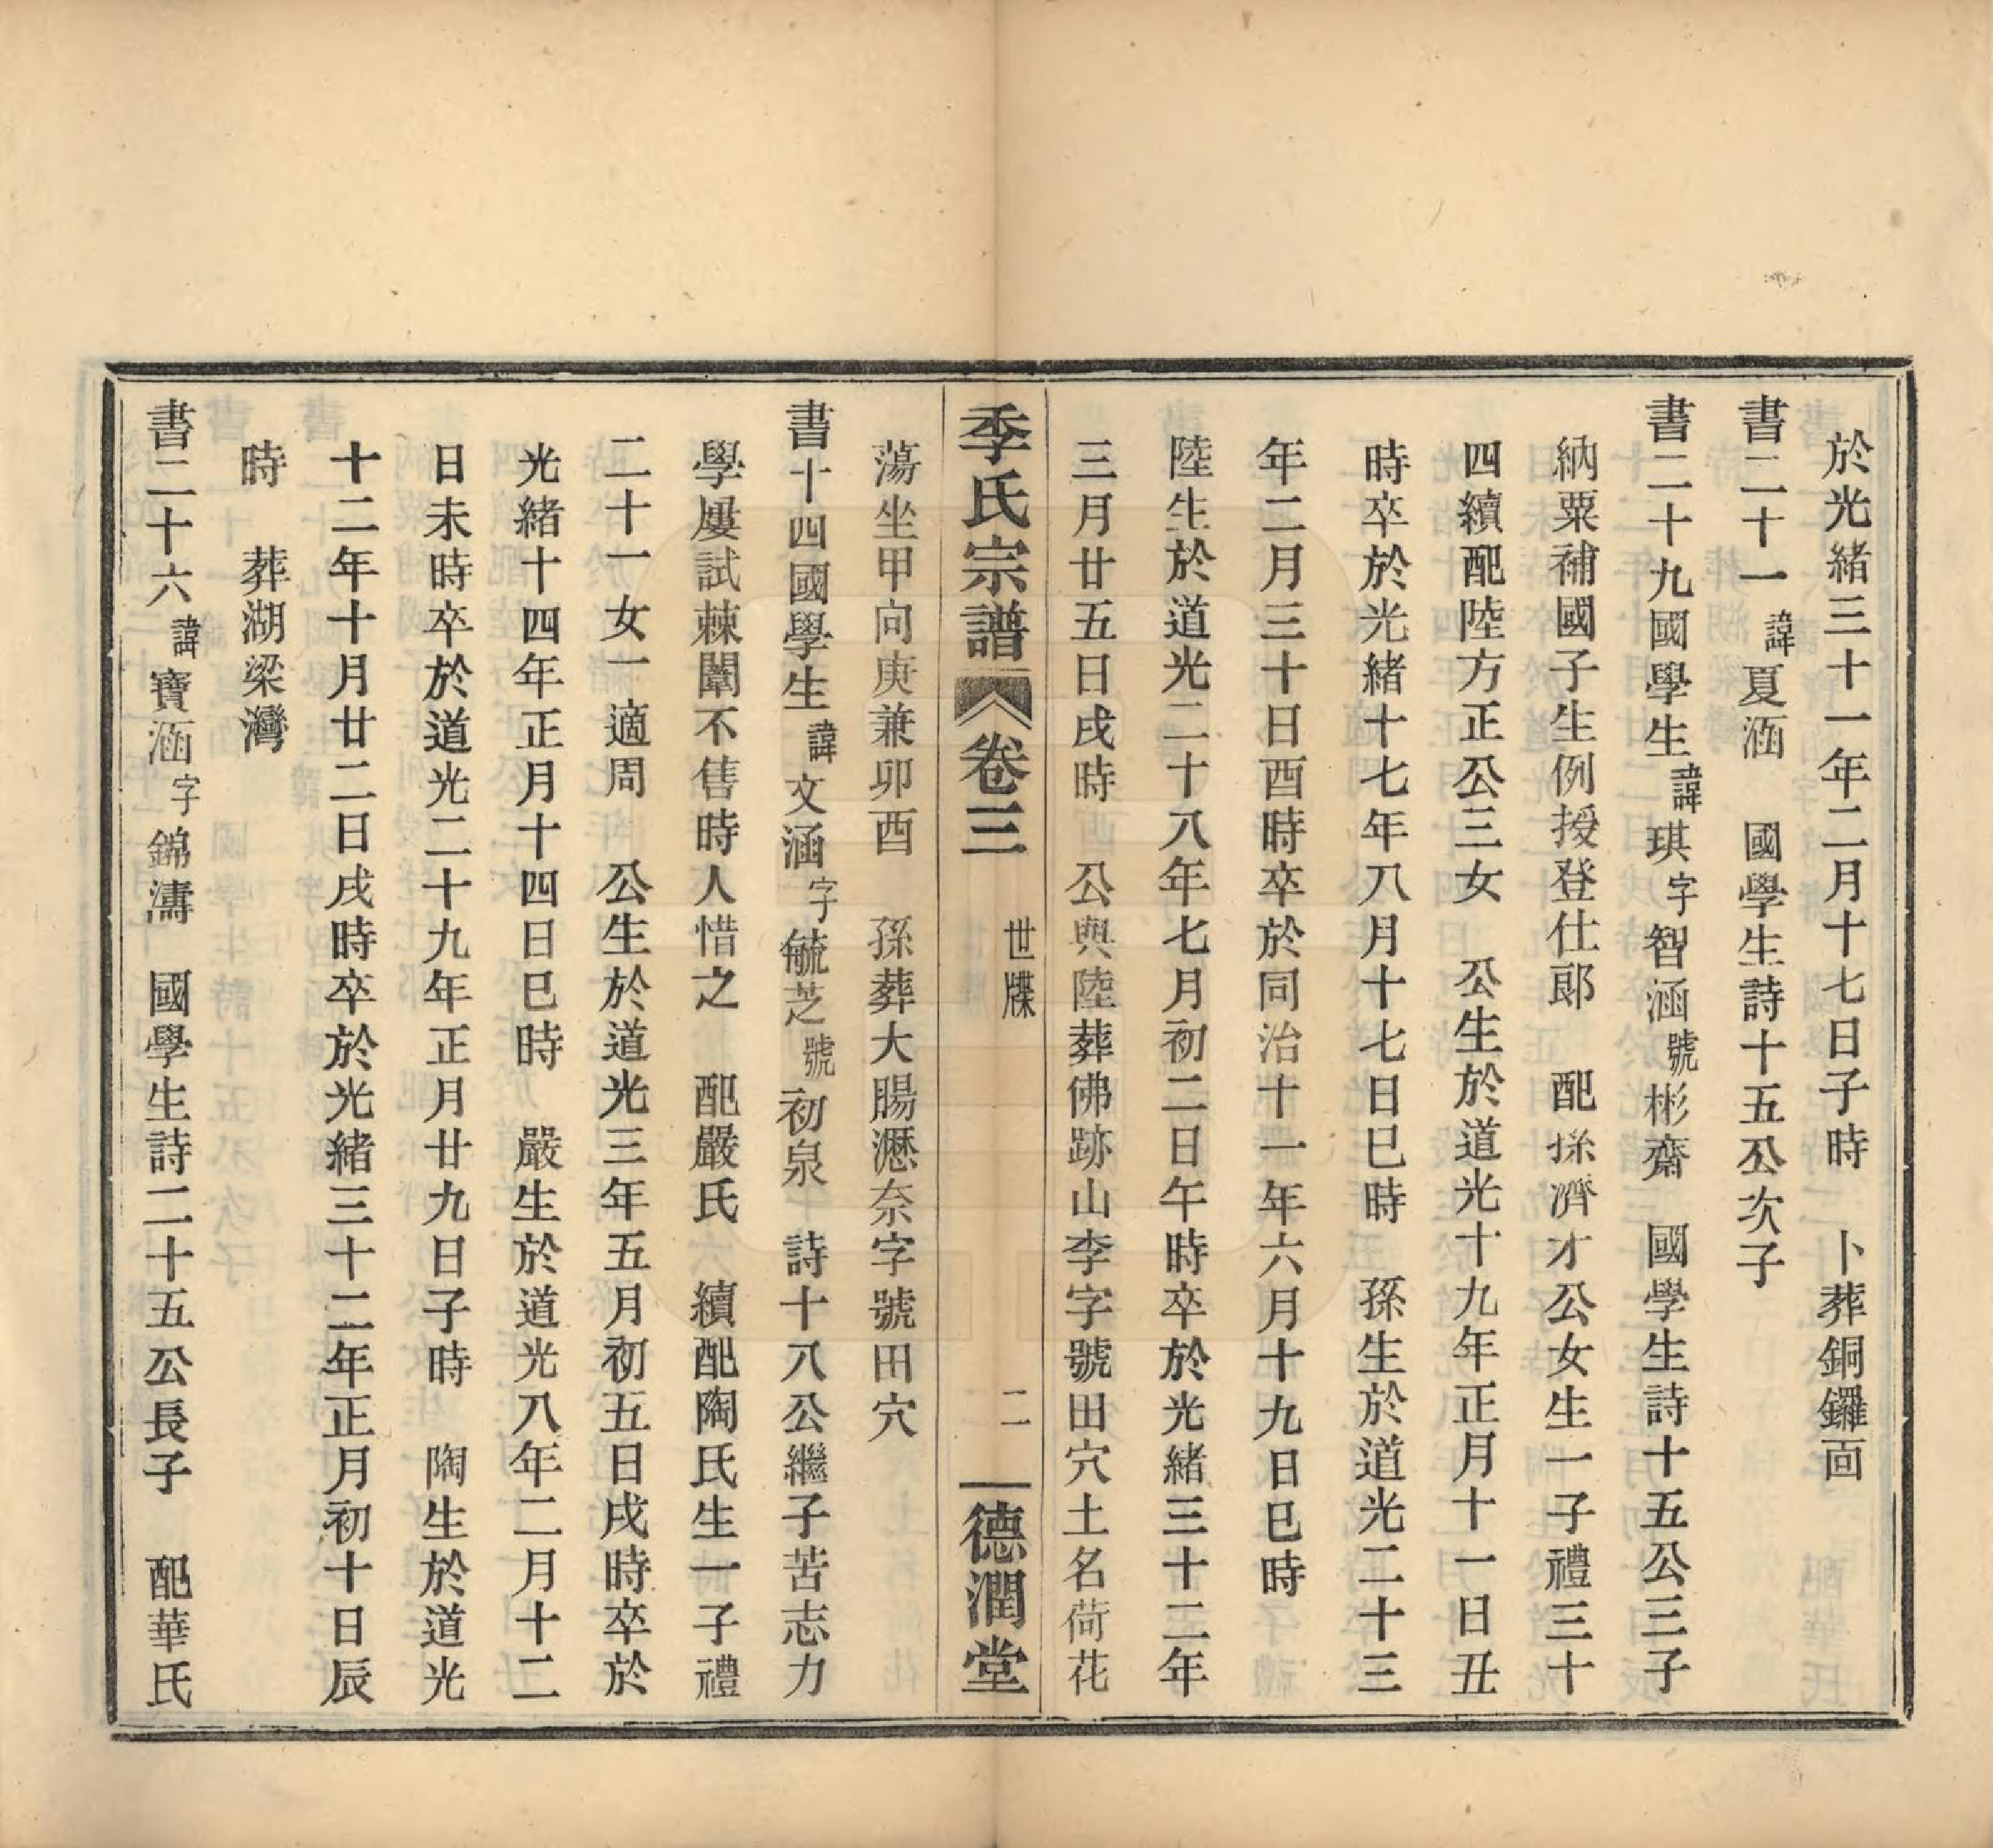 於光緒三十一年二月十七日子時　卜葬銅鑼面
書二十一諱夏涵　國學生詩十五公次子
書二十九國學生諱琪字智涵號彬齋　國學生詩十五公三子
納粟補國子生例授登仕郎　配孫濟才公女生一子禮三十
四續配陸方正公三女　公生於道光十九年正月十一日丑
時卒於光緒十七年八月十七日巳時　孫生於道光二十三
年二月三十日酉時卒於同治十一年六月十九日巳時
陸生於道光二十八年七月初二日午時卒於光緒三十二年
三月廿五日戌時　公與陸葬佛跡山李字號田穴土名荷花
季氏宗譜　卷三　世牒　二　德潤堂
蕩坐甲向庚兼卯酉　孫葬大腸瀝奈字號田穴
書十四國學生諱文涵字毓芝號初泉　詩十八公繼子苦志力
學屢試棘闈不售時人惜之　配嚴氏　續配陶氏生一子禮
二十一女一適周　公生於道光三年五月初五日戌時卒於
光緒十四年正月十四日巳時　嚴生於道光八年二月十二
日未時卒於道光二十九年正月廿九日子時　陶生於道光
十二年十月廿二日戌時卒於光緒三十二年正月初十日辰
時　葬湖梁灣
書二十六諱寶涵字錦濤　國學生詩二十五公長子　配華氏